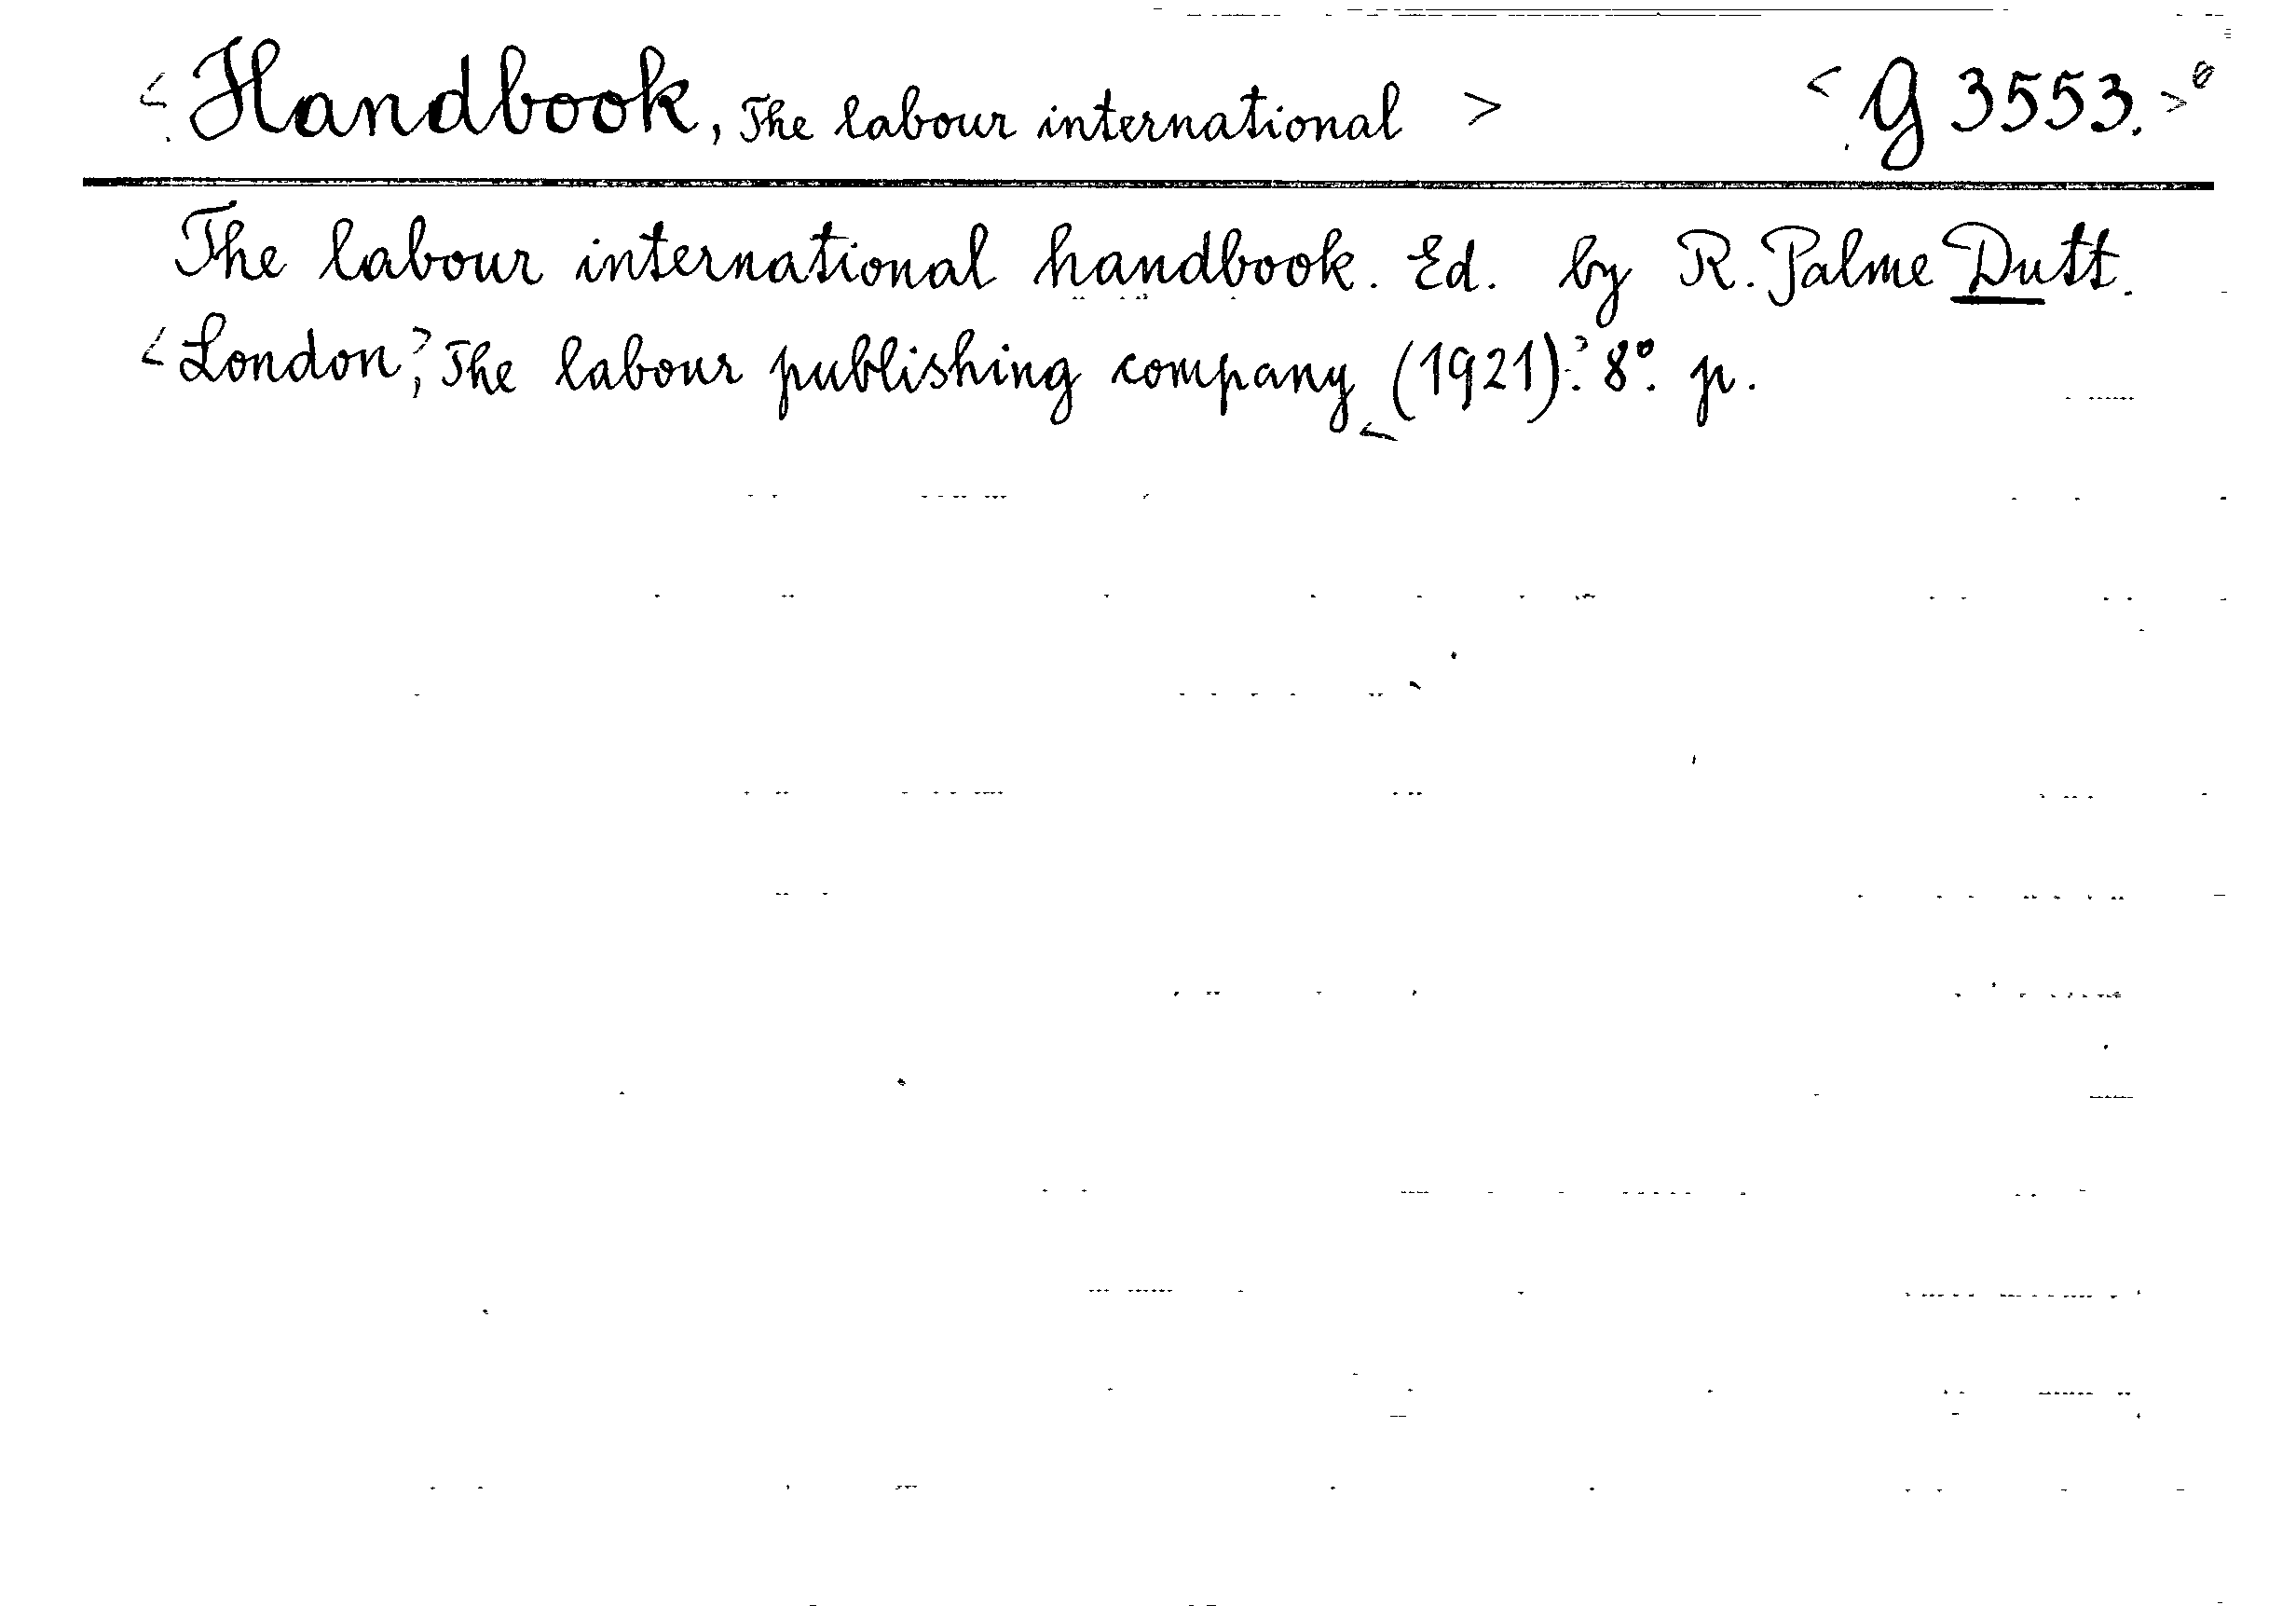 <Handbook, The labour international> <G 3553.>
The labour international handbook. Ed. by R. Palme Dutt.
<London>, The labour publishing company <(1921)>. 8°. p.